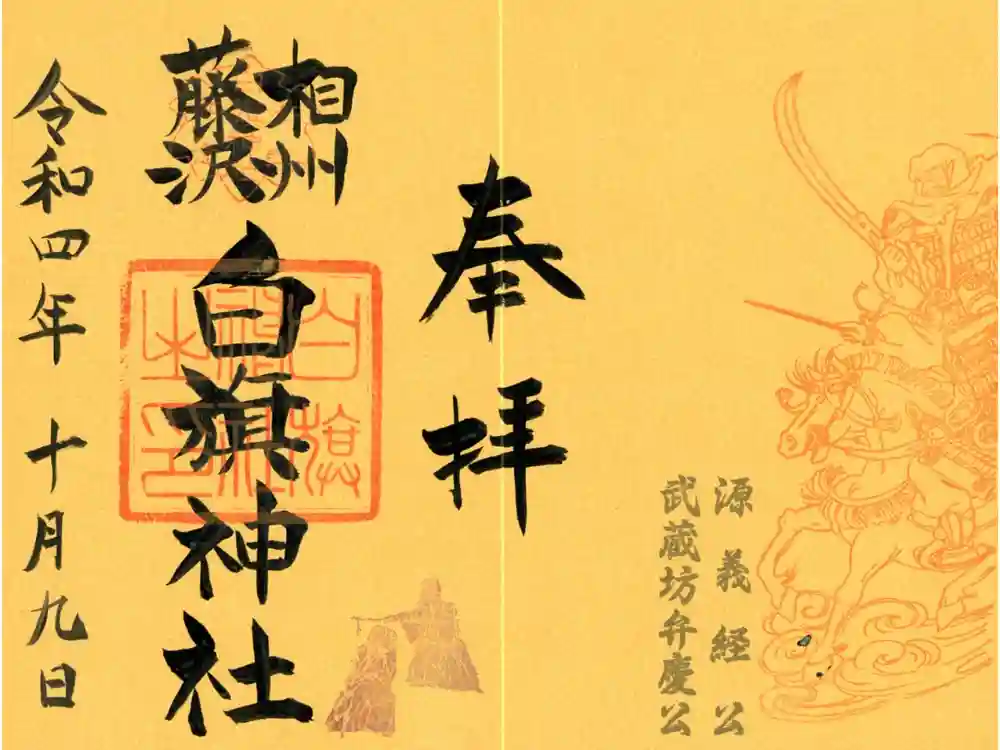 源義経公
武蔵坊弁慶公
奉拝
相州
藤沢
白旗神社
白旗
神社
之印
令和四年 十月九日